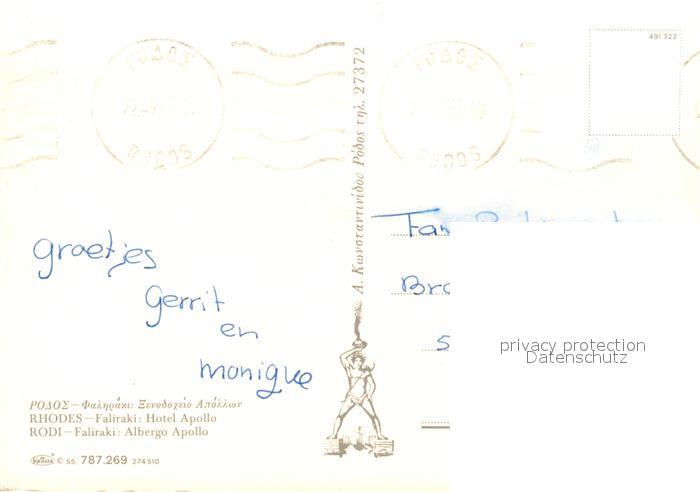 ΡΟΔΟΣ
RODOS
ΡΟΔΟΣ
RODOS
491 322
Α. Κωνσταντινίδου Ρόδος τηλ. 27372
groetjes
Gerrit
en
monique
Fam
Bro
5
privacy protection
Datenschutz
ΡΟΔΟΣ – Φαληράκι: Ξενοδοχείο Απόλλων
RHODES – Faliraki: Hotel Apollo
RODI – Faliraki: Albergo Apollo
© 55. 787.269 274510